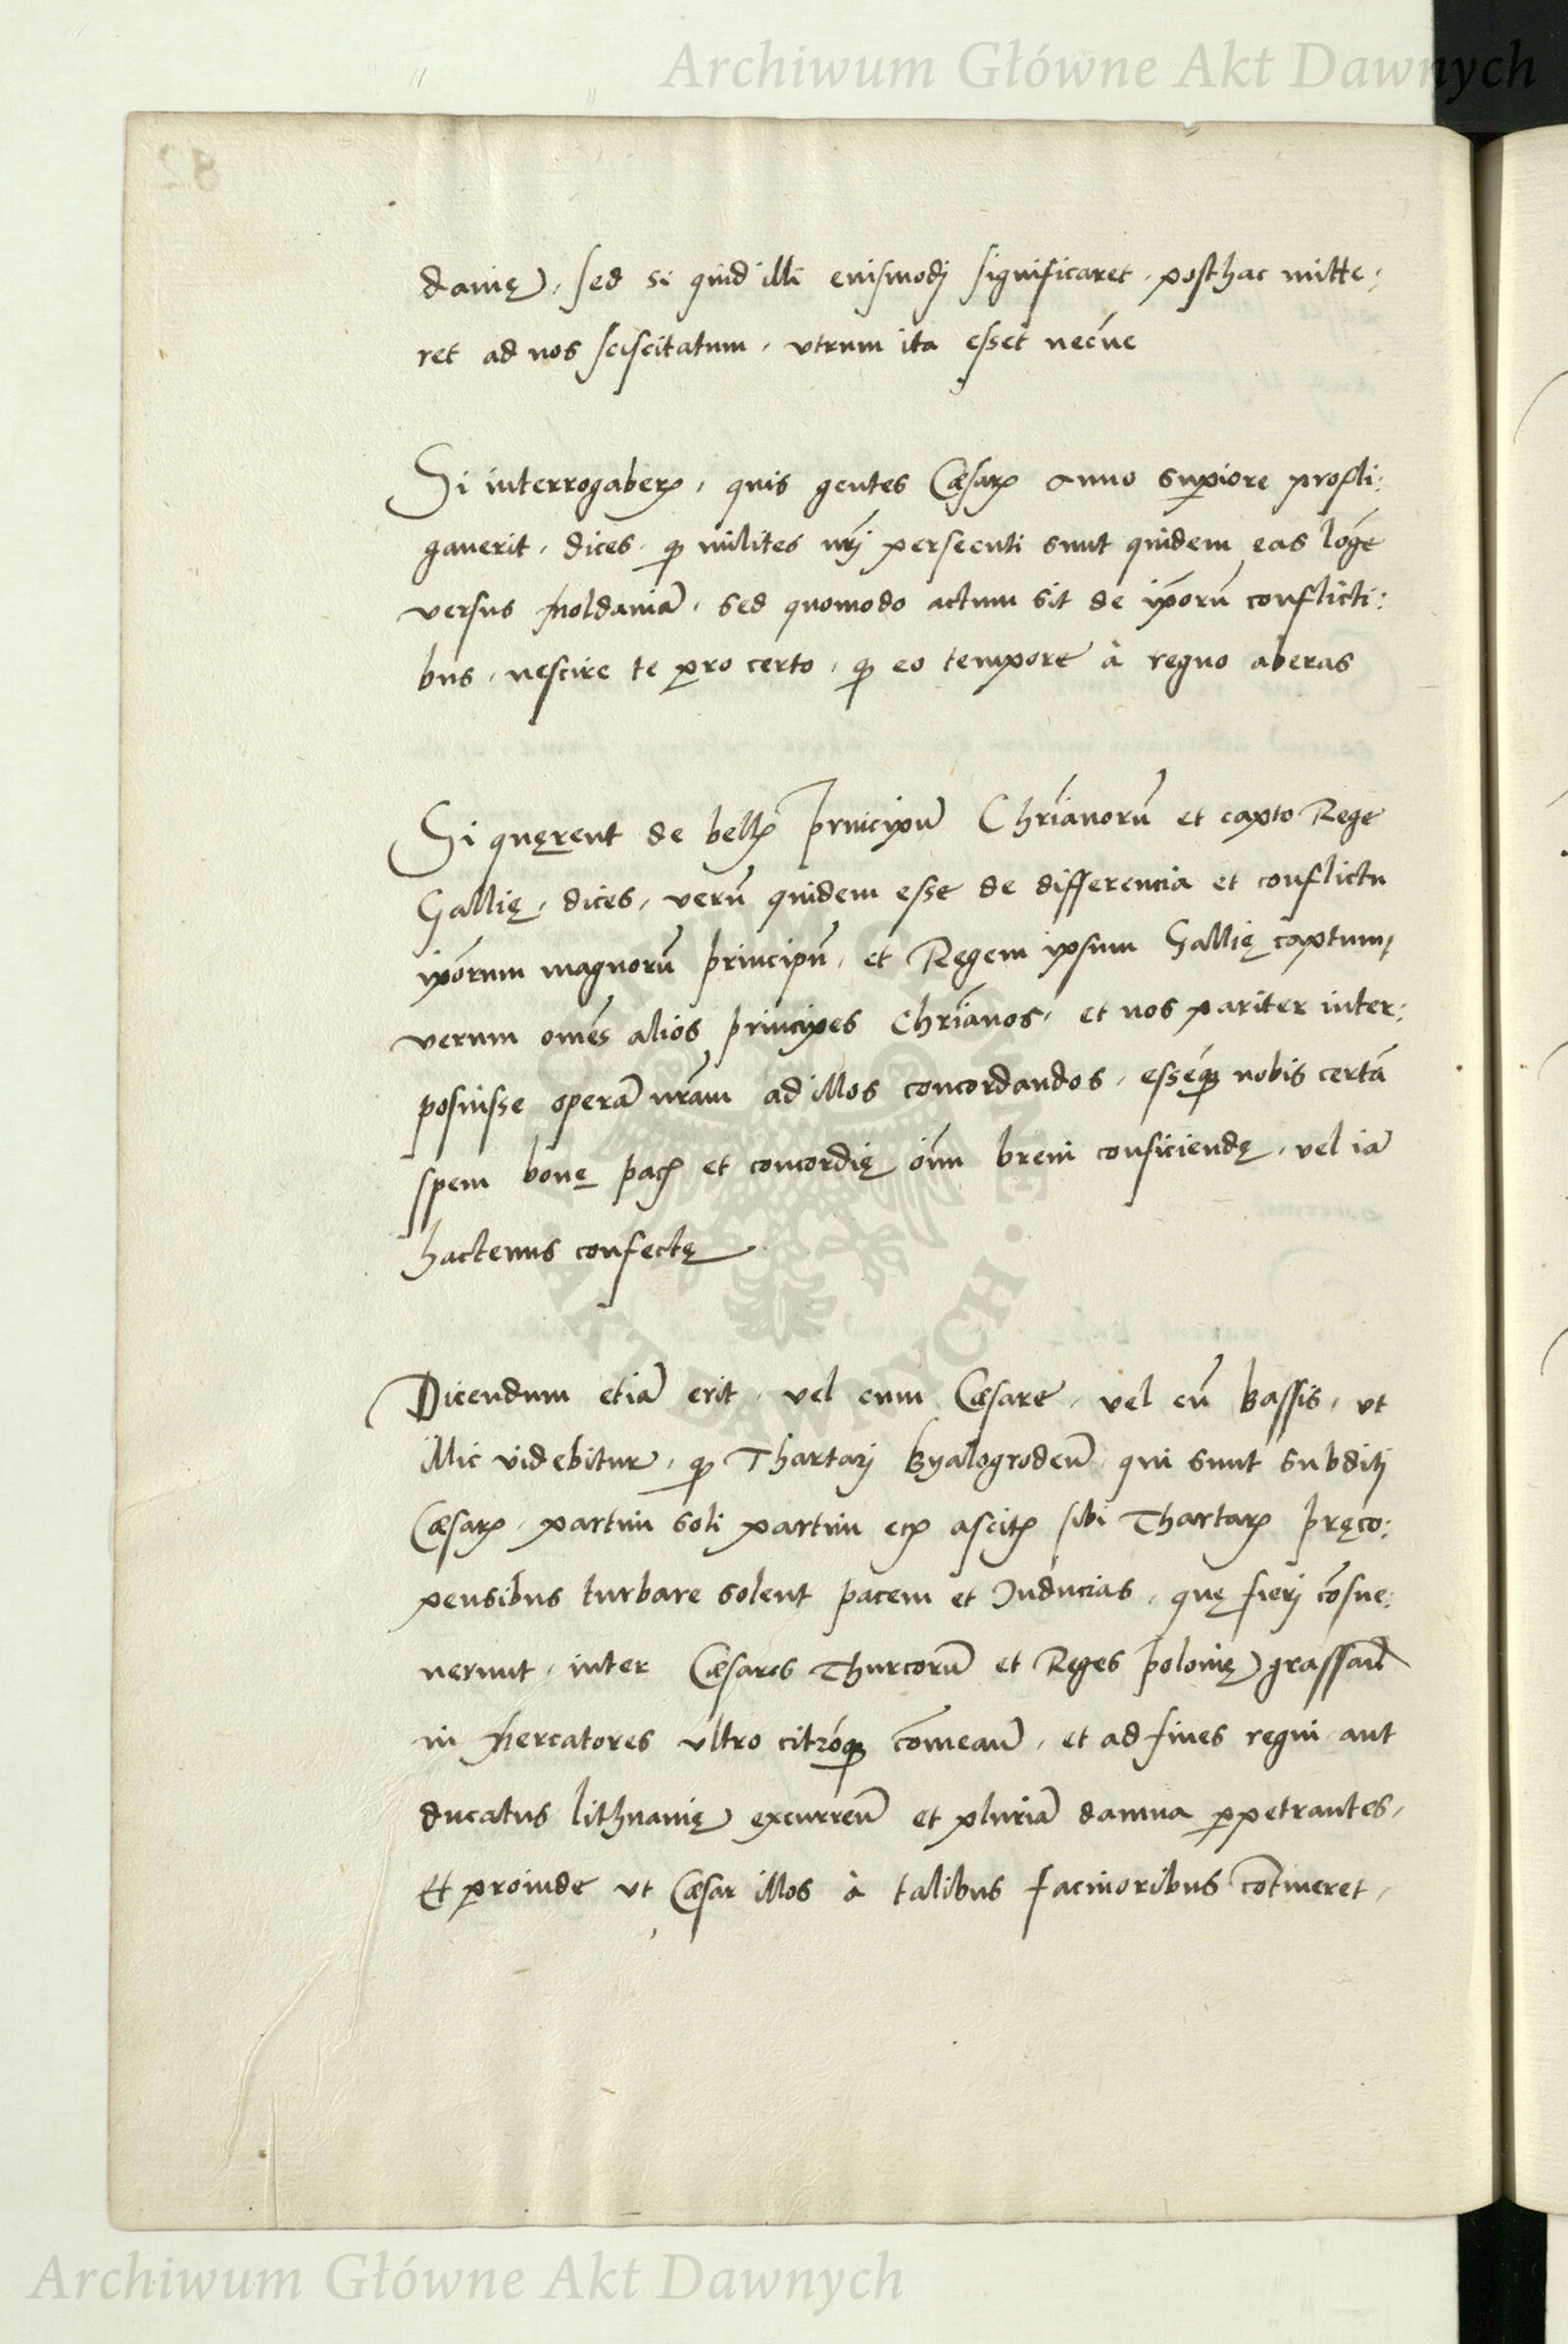 Archiwum Główne Akt Dawnych
82
davię, sed si quid illi eiusmodj significaret, posthac mitte:
ret ad nos sciscitatum, vtrum ita esset necne
Si interrogaberꝭ, quis gentes Cæsarꝭ anno supiore profli:
gaverit, dices, ꝙ milites nr̃j persecuti sunt quidem eas lo̅ge
versus Moldaviã, sed quomodo actum sit de ip̃orũ conflicti:
bus, nescire te pro certo, ꝙ eo tempore à regno aberas
Si quęrent de bellꝭ Principũ Chr̃ianorũ et capto Rege
Gallię, dices, verũ quidem esse de differencia et conflictu
ip̃orum magnorũ principũ, et Regem ipsum Gallię captum,
verum om̃es alios principes Chr̃ianos, et nos pariter inter:
posuisse operã nr̃am ad illos concordandos, esseq̃ nobis certã
spem bonę pacꝭ et concordię oĩm brevi conficiendę, vel iã
hactenus confectę
Dicendum etiã erit, vel cum Cæsare, vel cũ Bassis, ut
illic videbitur, ꝙ Thartarj Byalogrodeñ, qui sunt subditj
Cæsarꝭ, partim soli partim ecꝭ ascitꝭ sibi Thartarꝭ pręco:
pensibus turbare solent pacem et Inducias, quę fierj cõsue:
verunt, inter Cæsares Thurcorũ et Reges Polonię grassañ
in Mercatores vltro citroq̃ com̃eañ, et ad fines regni aut
ducatus lithuanię excurreñ et pluriã damna ꝑpetrantes,
Et proinde ut Cæsar illos à talibus facinoribus cõtineret,
ARCHIWUM GŁÓWNE · AKT DAWNYCH ·
Archiwum Główne Akt Dawnych